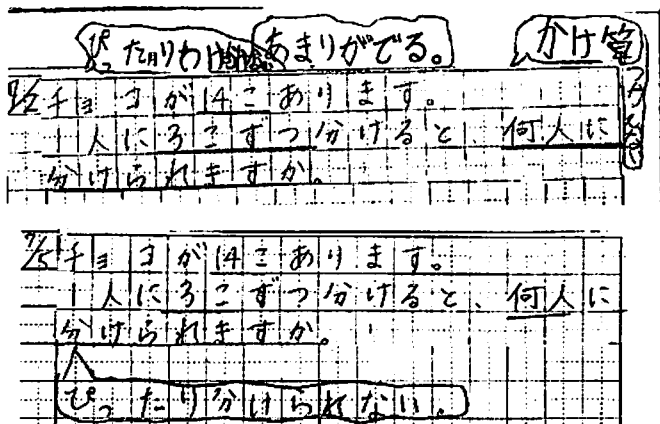 ぴったりわけられない
あまりがでる。
かけ算
つかえない
7/2 チョコが14こあります。
1人に3こずつ分けると 何人に
分けられますか。
7/5 チョコが14こあります。
1人に3こずつ分けると、何人に
分けられますか。
ぴったり分けられない。